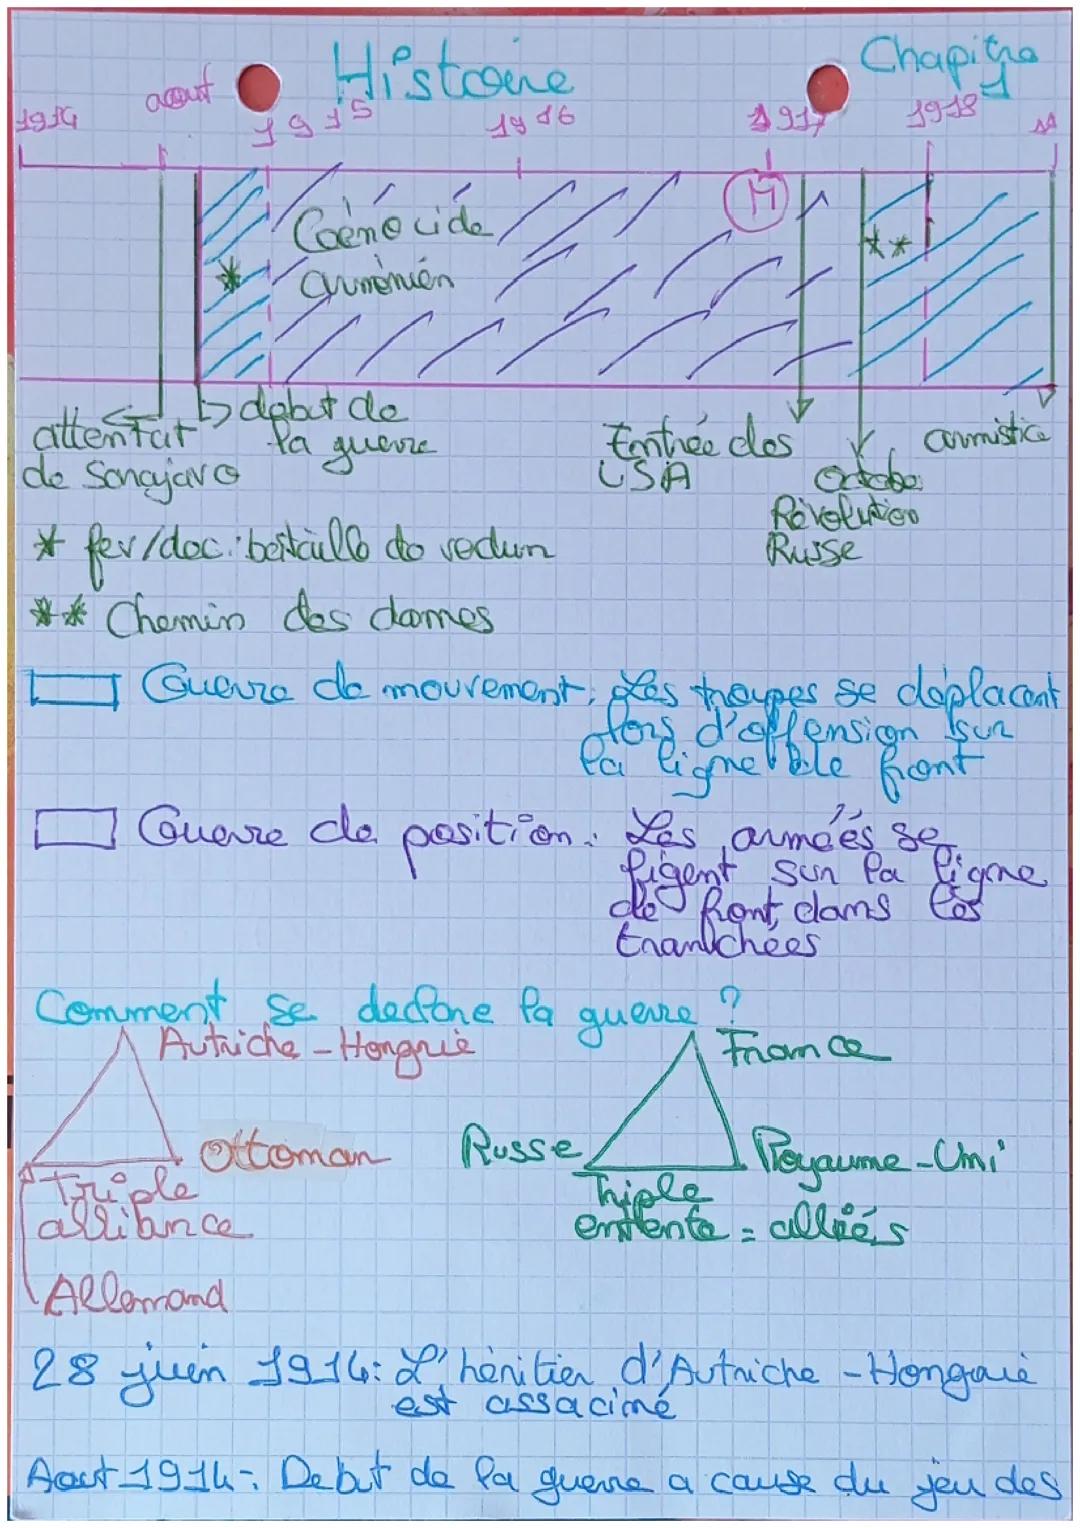 Histoire
Chapitre
1
1914 aout 1915 1916 1917 1918 11
M
Génocide
arménien
* **
attentat
de Sarajavo
début de
la guerre
Entrée des
USA
Octobe
Révolution
Russe
armistice
* fev/dec: bataille de verdun
** Chemin des dames
Guerre de mouvement: Les troupes se déplacent
lors d'offension sur
la ligne de front
Guerre de position: Les armées se
figent sur la ligne
de front, dans les
tranchées
Comment se declare la guerre ?
Autriche - Hongrie
Ottoman
Triple
alliance
Allemand
France
Russe
Royaume-Uni
Triple
entente = alliés
28 juin 1914: L'héritier d'Autriche - Hongrie
est assaciné
Aout 1914: Debut de la guerre a cause du jeu des